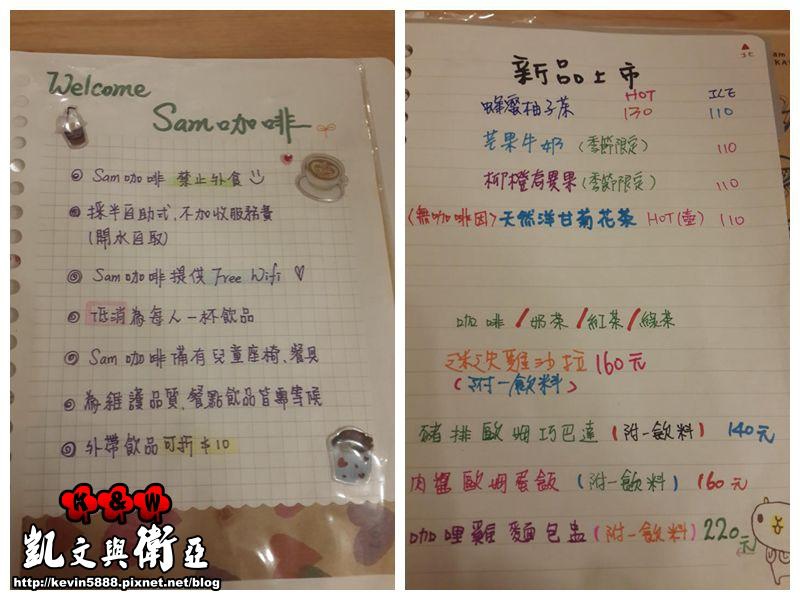 Welcome
Sam咖啡
Sam 咖啡 禁止外食
採半自助式、不加收服務費
(開水自取)
Sam 咖啡 提供 Free Wifi
低消為每人一杯飲品
Sam 咖啡 備有兒童座椅、餐具
為維護品質、餐點飲品皆需等候
外帶飲品可折 $10
K&W
凱文與衛亞
http://kevin5888.pixnet.net/blog
新品上市
HOT ICE
蜂蜜柚子茶 130 110
芒果牛奶 (季節限定) 110
柳橙百果 (季節限定) 110
(無咖啡因) 天然洋甘菊花茶 HOT(壺) 110
咖啡/奶茶/紅茶/綠茶
迷迭雞沙拉 160元
(附一飲料)
豬排歐姆巧巴達 (附一飲料) 140元
肉醬歐姆蛋飯 (附一飲料) 160元
咖哩雞麵包盅 (附一飲料) 220元